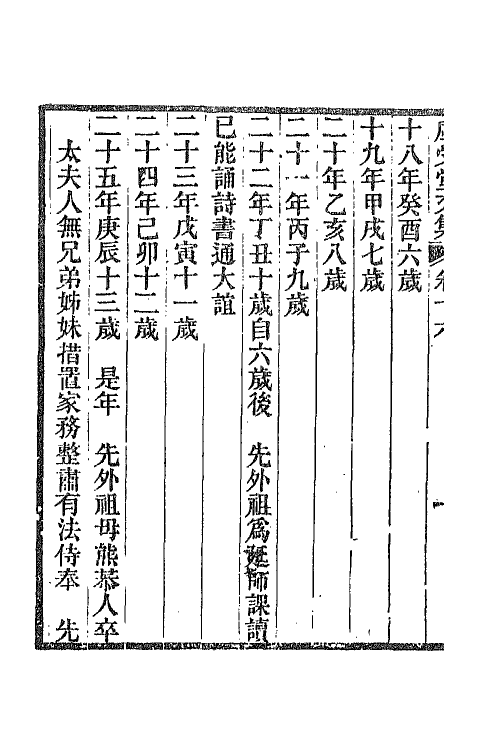 十八年癸酉六歲
十九年甲戌七歲
二十年乙亥八歲
二十一年丙子九歲
二十二年丁丑十歲自六歲後　先外祖爲延師課讀
已能誦詩書通大誼
二十三年戊寅十一歲
二十四年己卯十二歲
二十五年庚辰十三歲　是年　先外祖母熊恭人卒
太夫人無兄弟姊妹措置家務整肅有法侍奉　先